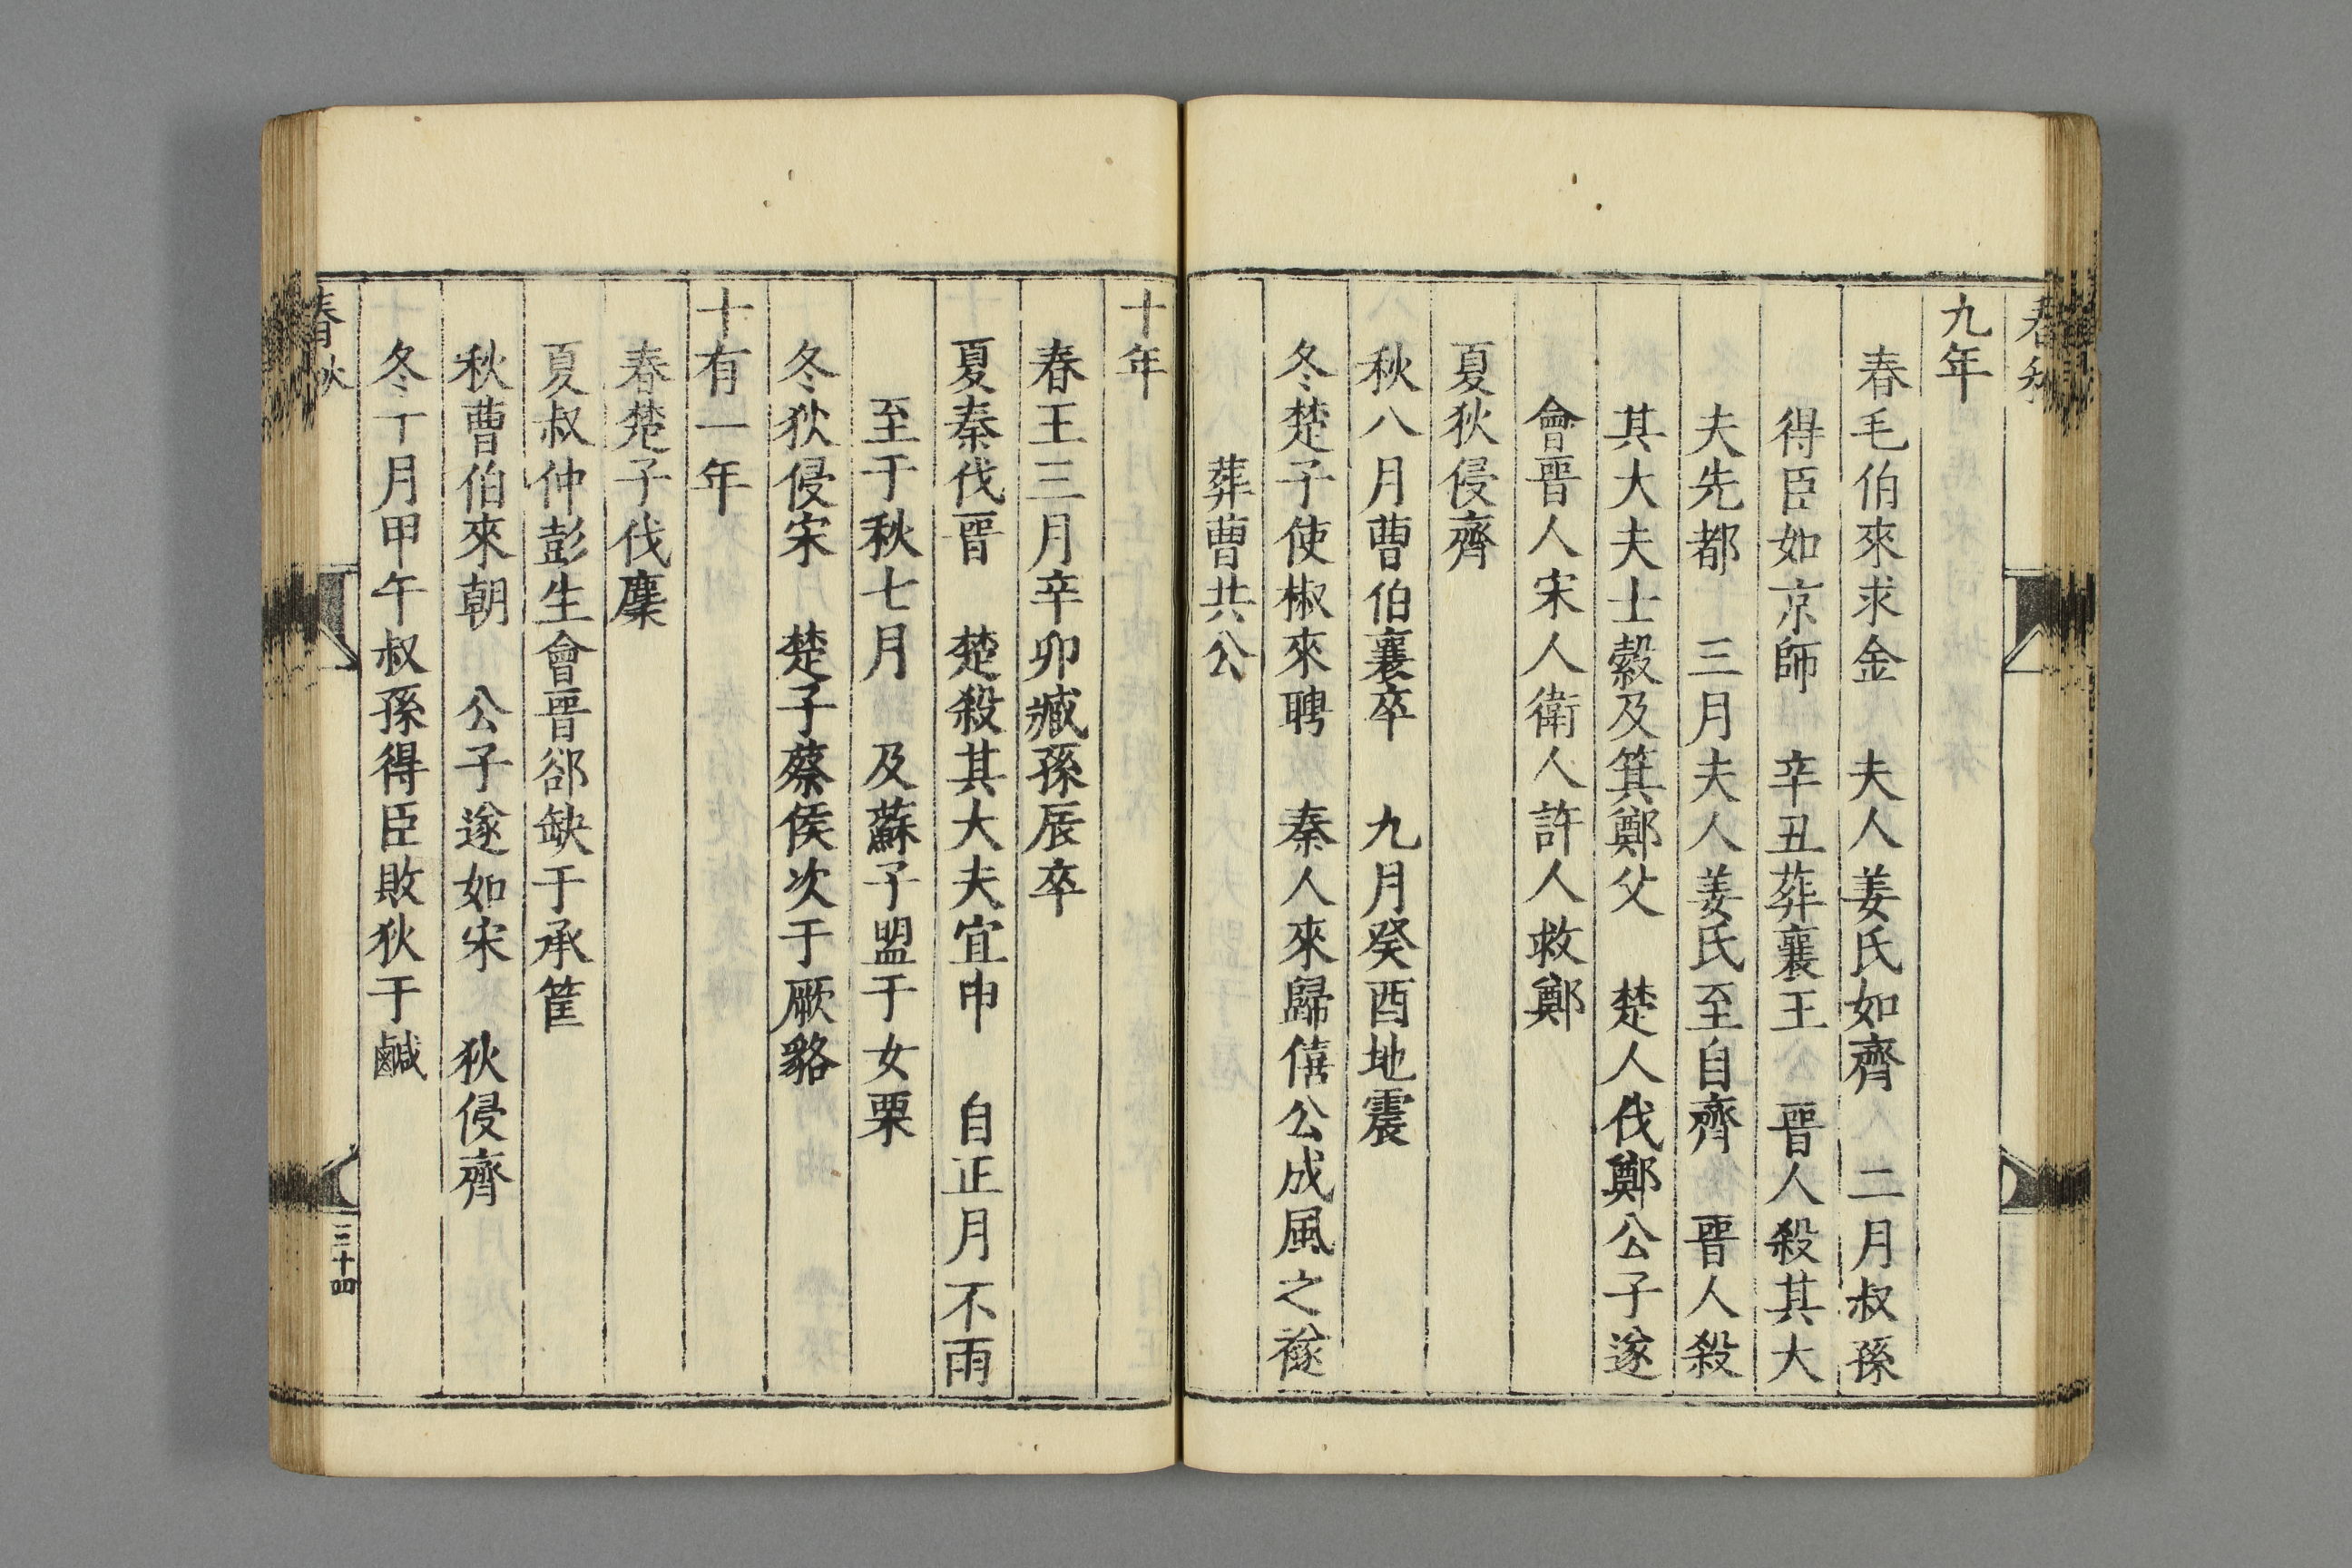 春秋
九年
春毛伯來求金　夫人姜氏如齊　二月叔孫
得臣如京師　辛丑葬襄王　晉人殺其大
夫先都　三月夫人姜氏至自齊　晉人殺
其大夫士縠及箕鄭父　楚人伐鄭公子遂
會晉人宋人衛人許人救鄭
夏狄侵齊
秋八月曹伯襄卒　九月癸酉地震
冬楚子使椒來聘　秦人來歸僖公成風之襚
葬曹共公
十年
春王三月辛卯臧孫辰卒
夏秦伐晉　楚殺其大夫宜申　自正月不雨
至于秋七月　及蘇子盟于女栗
冬狄侵宋　楚子蔡侯次于厥貉
十有一年
春楚子伐麇
夏叔仲彭生會晉郤缺于承筐
秋曹伯來朝　公子遂如宋　狄侵齊
冬十月甲午叔孫得臣敗狄于鹹
春秋
三十四